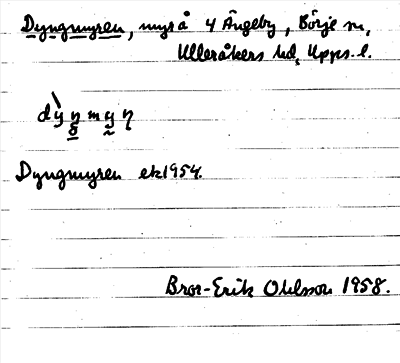 Dyngmyren, myrå 4 Ängeby, Börje sn,
Ulleråkers hd, Upps. l.
dỳŋmyṇ
Dyngmyren ek 1954.
Bror-Erik Ohlsson 1958.